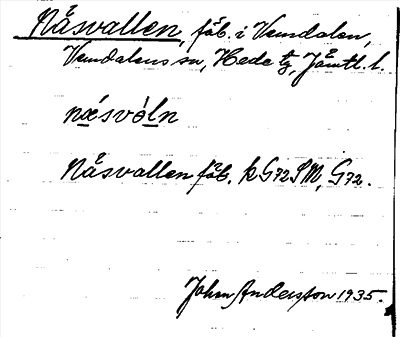 Nåsvallen, fäb. i Vemdalen,
Vemdalens sn, Hede tg, Jämtl. l.
næsvòln
Nåsvallen fäb. k G72 SM, G72.
John Andersson 1935.